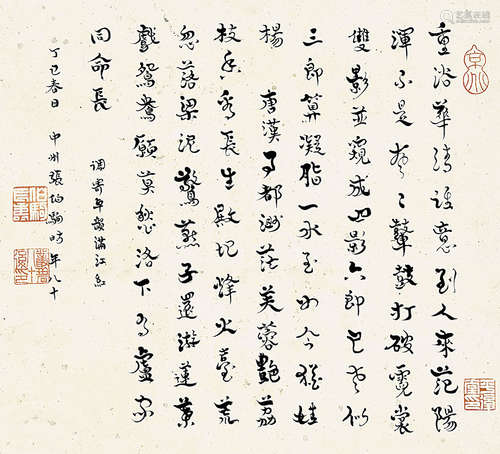 重浴華清語意到人來范陽
渾不是鼙鼓打破霓裳
雙影並窺成四影六郎已老似
三郎算凝脂一水今猶姓
楊 唐漢事都渺茫芙蓉艷荔
枝香看長生殿圮烽火臺荒
忽落梁泥驚燕子還游蓮葉
戲鴛鴦願莫愁洛下為盧家
同命長
調寄平韻滿江紅
丁巳春日 中州張伯駒時年八十